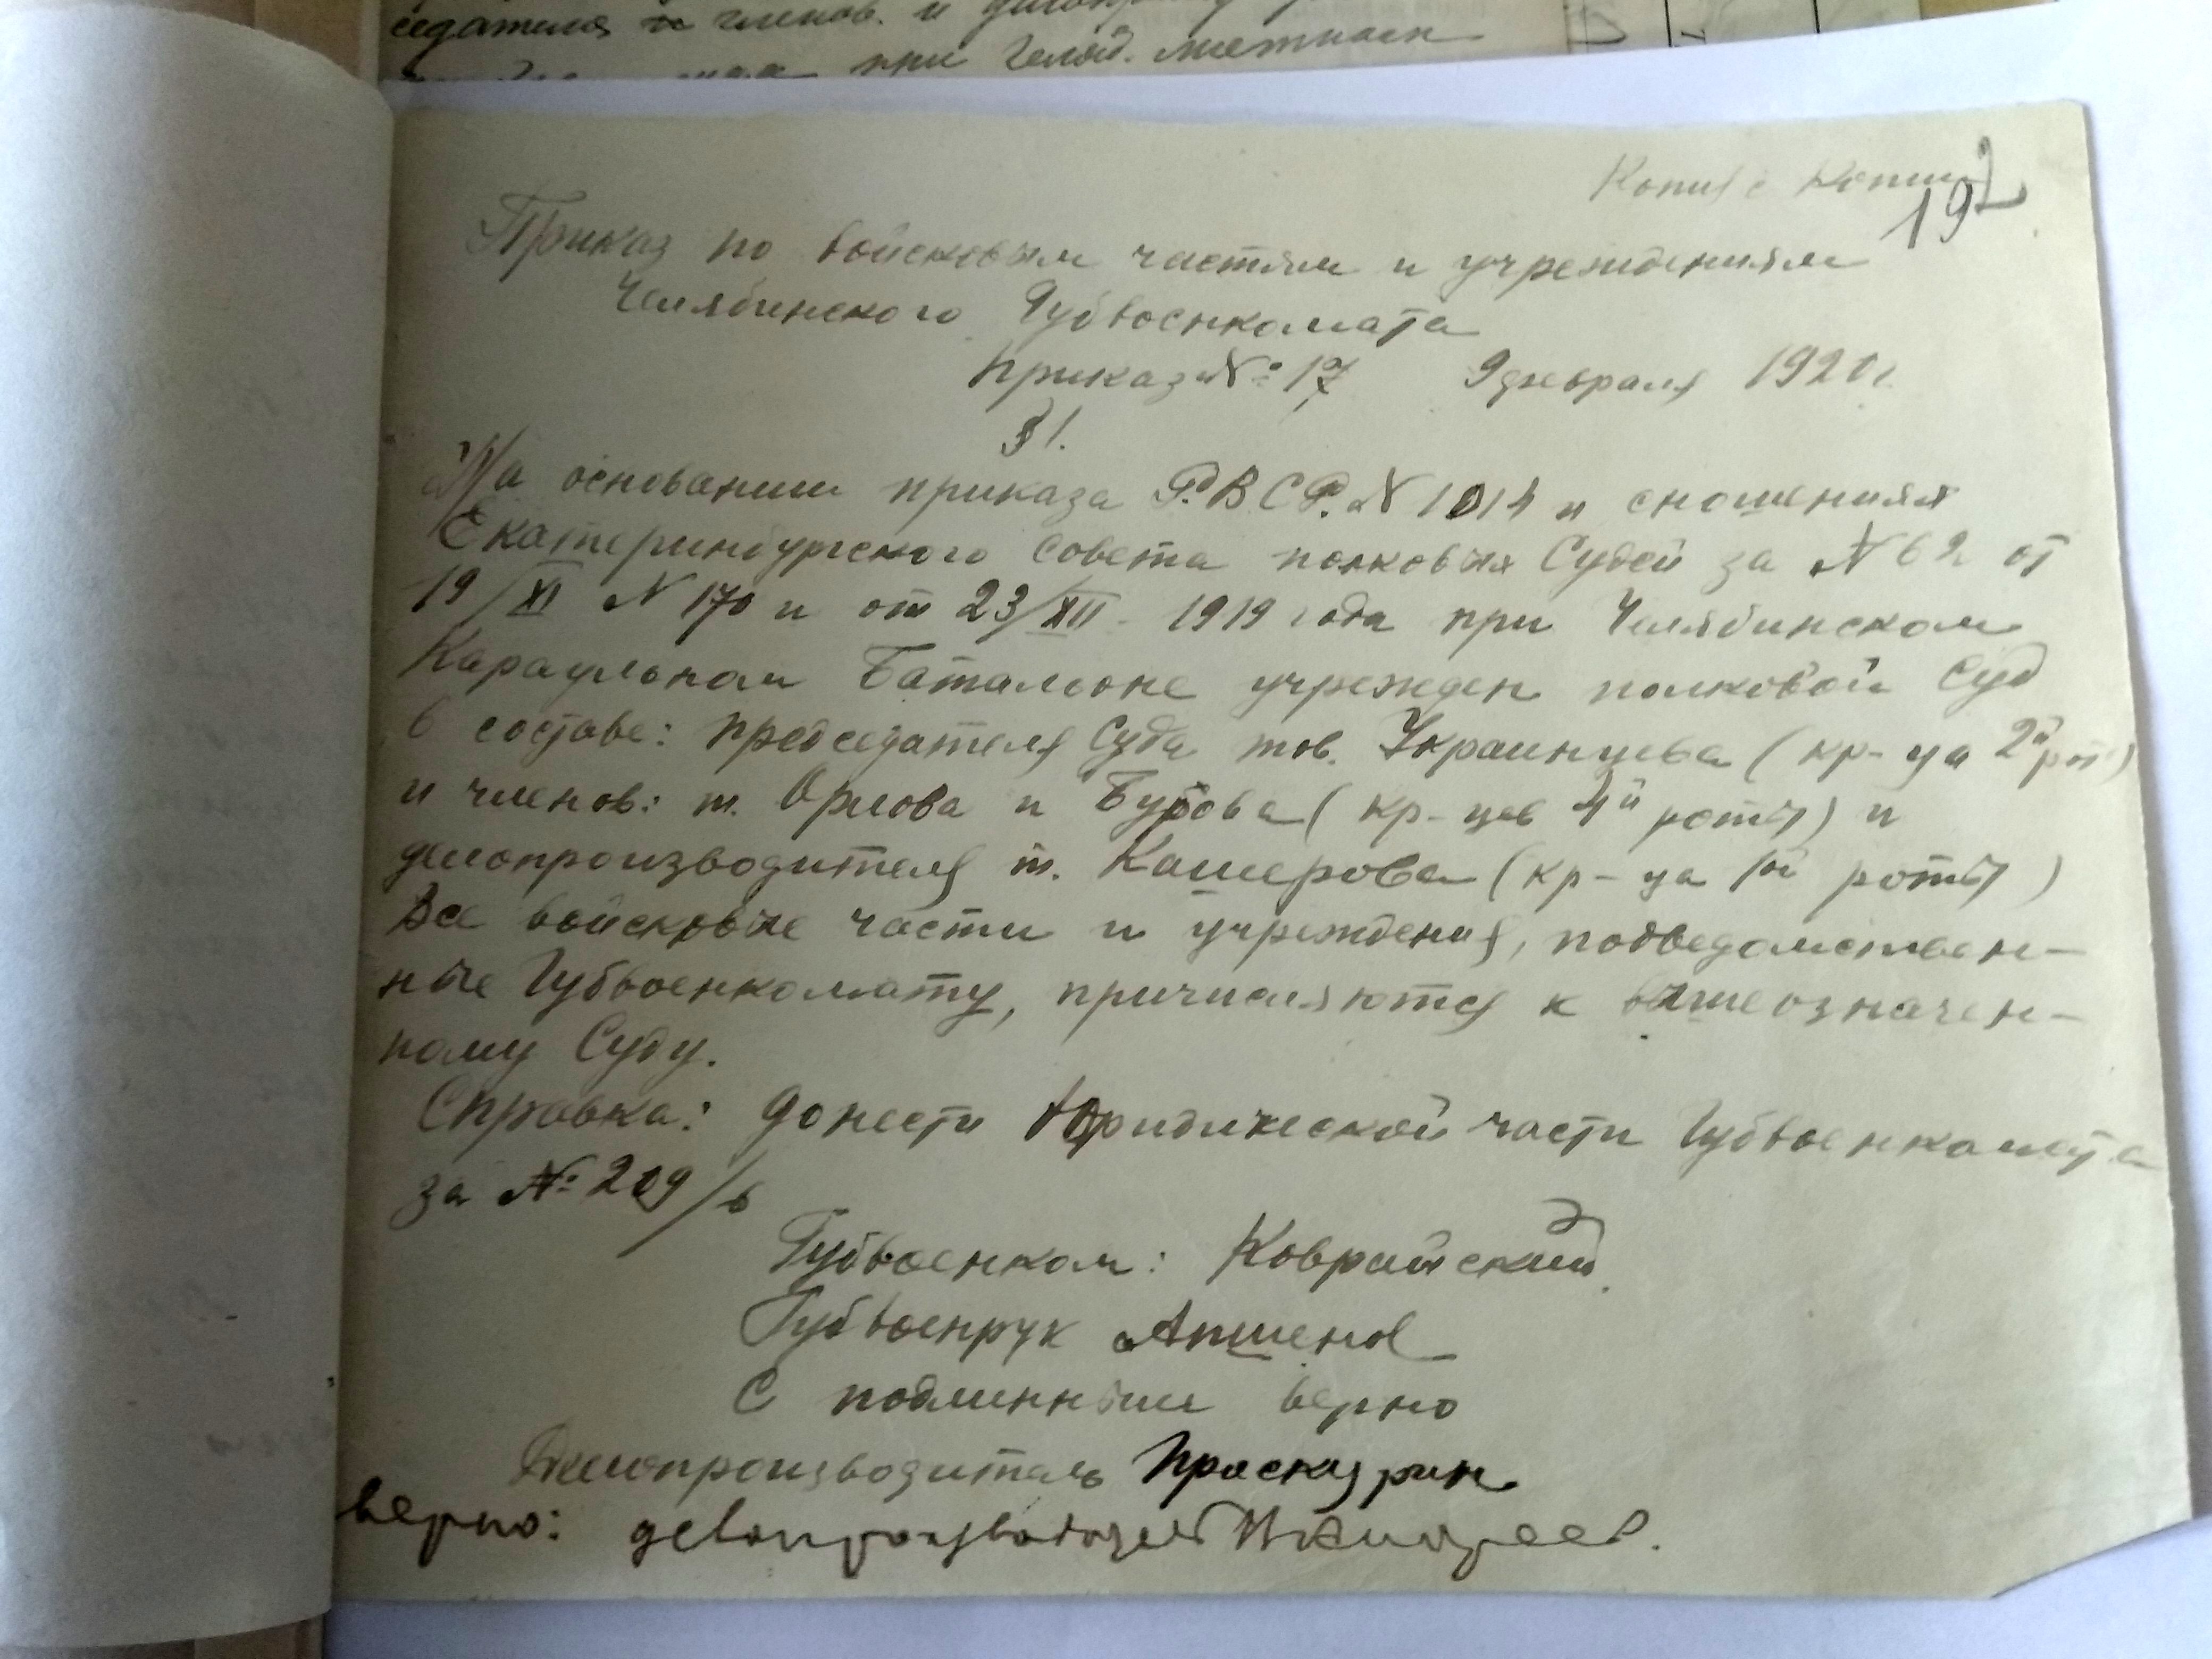 седателя и членов. и
при Челяб. местном
Копия с копии
192
Приказ по войсковым частям и учреждениям
Челябинского Губвоенкомата
Приказ № 17 9 февраля 1920 г.
§ 1.
На основании приказа Р.В.С.Р. № 1014 и сношениях
Екатеринбургского Совета полковых Судей за № 62 от
19/XI № 170 и от 23/XII - 1919 года при Челябинском
Караульном Баталионе учрежден полковой Суд
в составе: председателя Суда тов. Украинцева (кр-ца 2й рот)
и членов: т. Орлова и Бурова (кр-цев 4й роты) и
делопроизводителя т. Кашерова (кр-ца 1ой роты)
Все войсковые части и учреждения, подведомствен-
ные Губвоенкомату, причисляются к вышеозначен-
ному Суду.
Справка: донести Юридической части Губвоенкомата
за № 209/б
Губвоенком: Коврайский
Губвоенрук Апшенов
С подлинным верно
Делопроизводитель Проскурин
верно: делопроизводител Андреев.